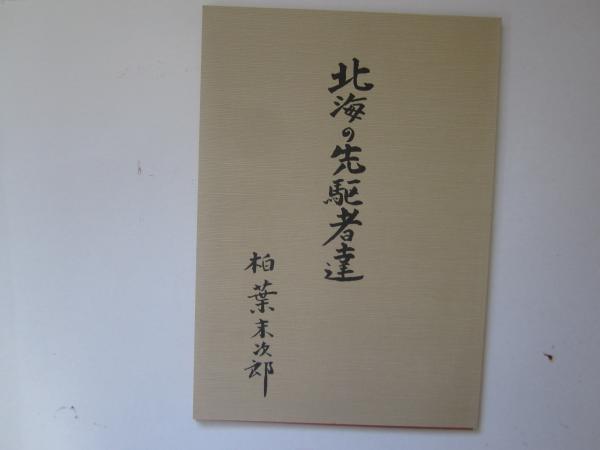 北海の先駆者達
柏葉末次郎